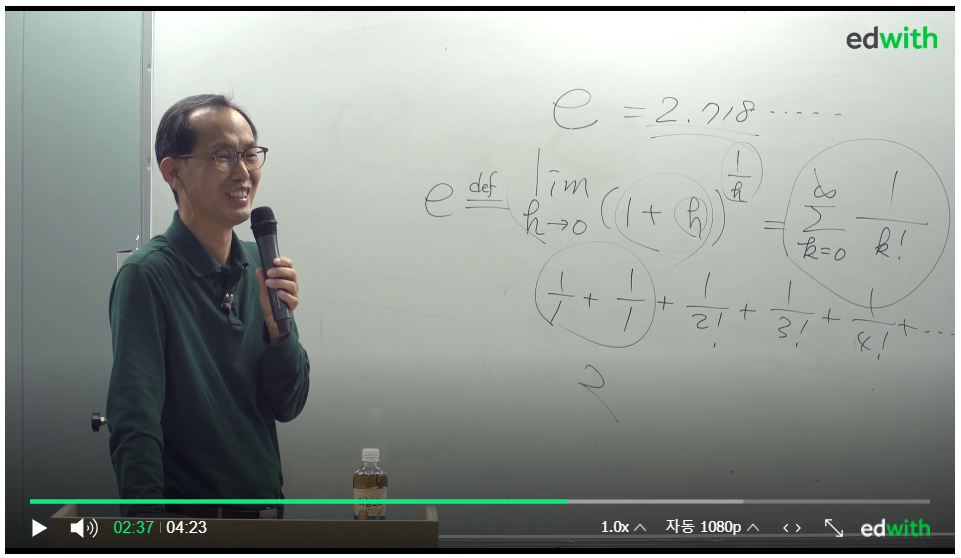 edwith
e = 2.718 ·····
e def= lim h→0 (1 + h)^(1/h) = ∞ Σ k=0 1/k!
1/1 + 1/1 + 1/2! + 1/3! + 1/4! + ...
2
02:37 | 04:23 1.0x 자동 1080p < > edwith